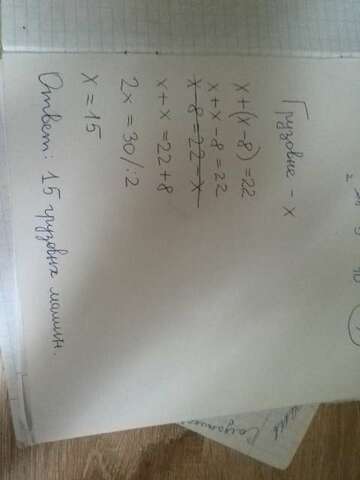 Грузовые - x
x+(x-8)=22
x+x-8=22
x-8=22=x
x+x=22+8
2x=30/:2
x=15
Ответ: 15 грузовых машин.